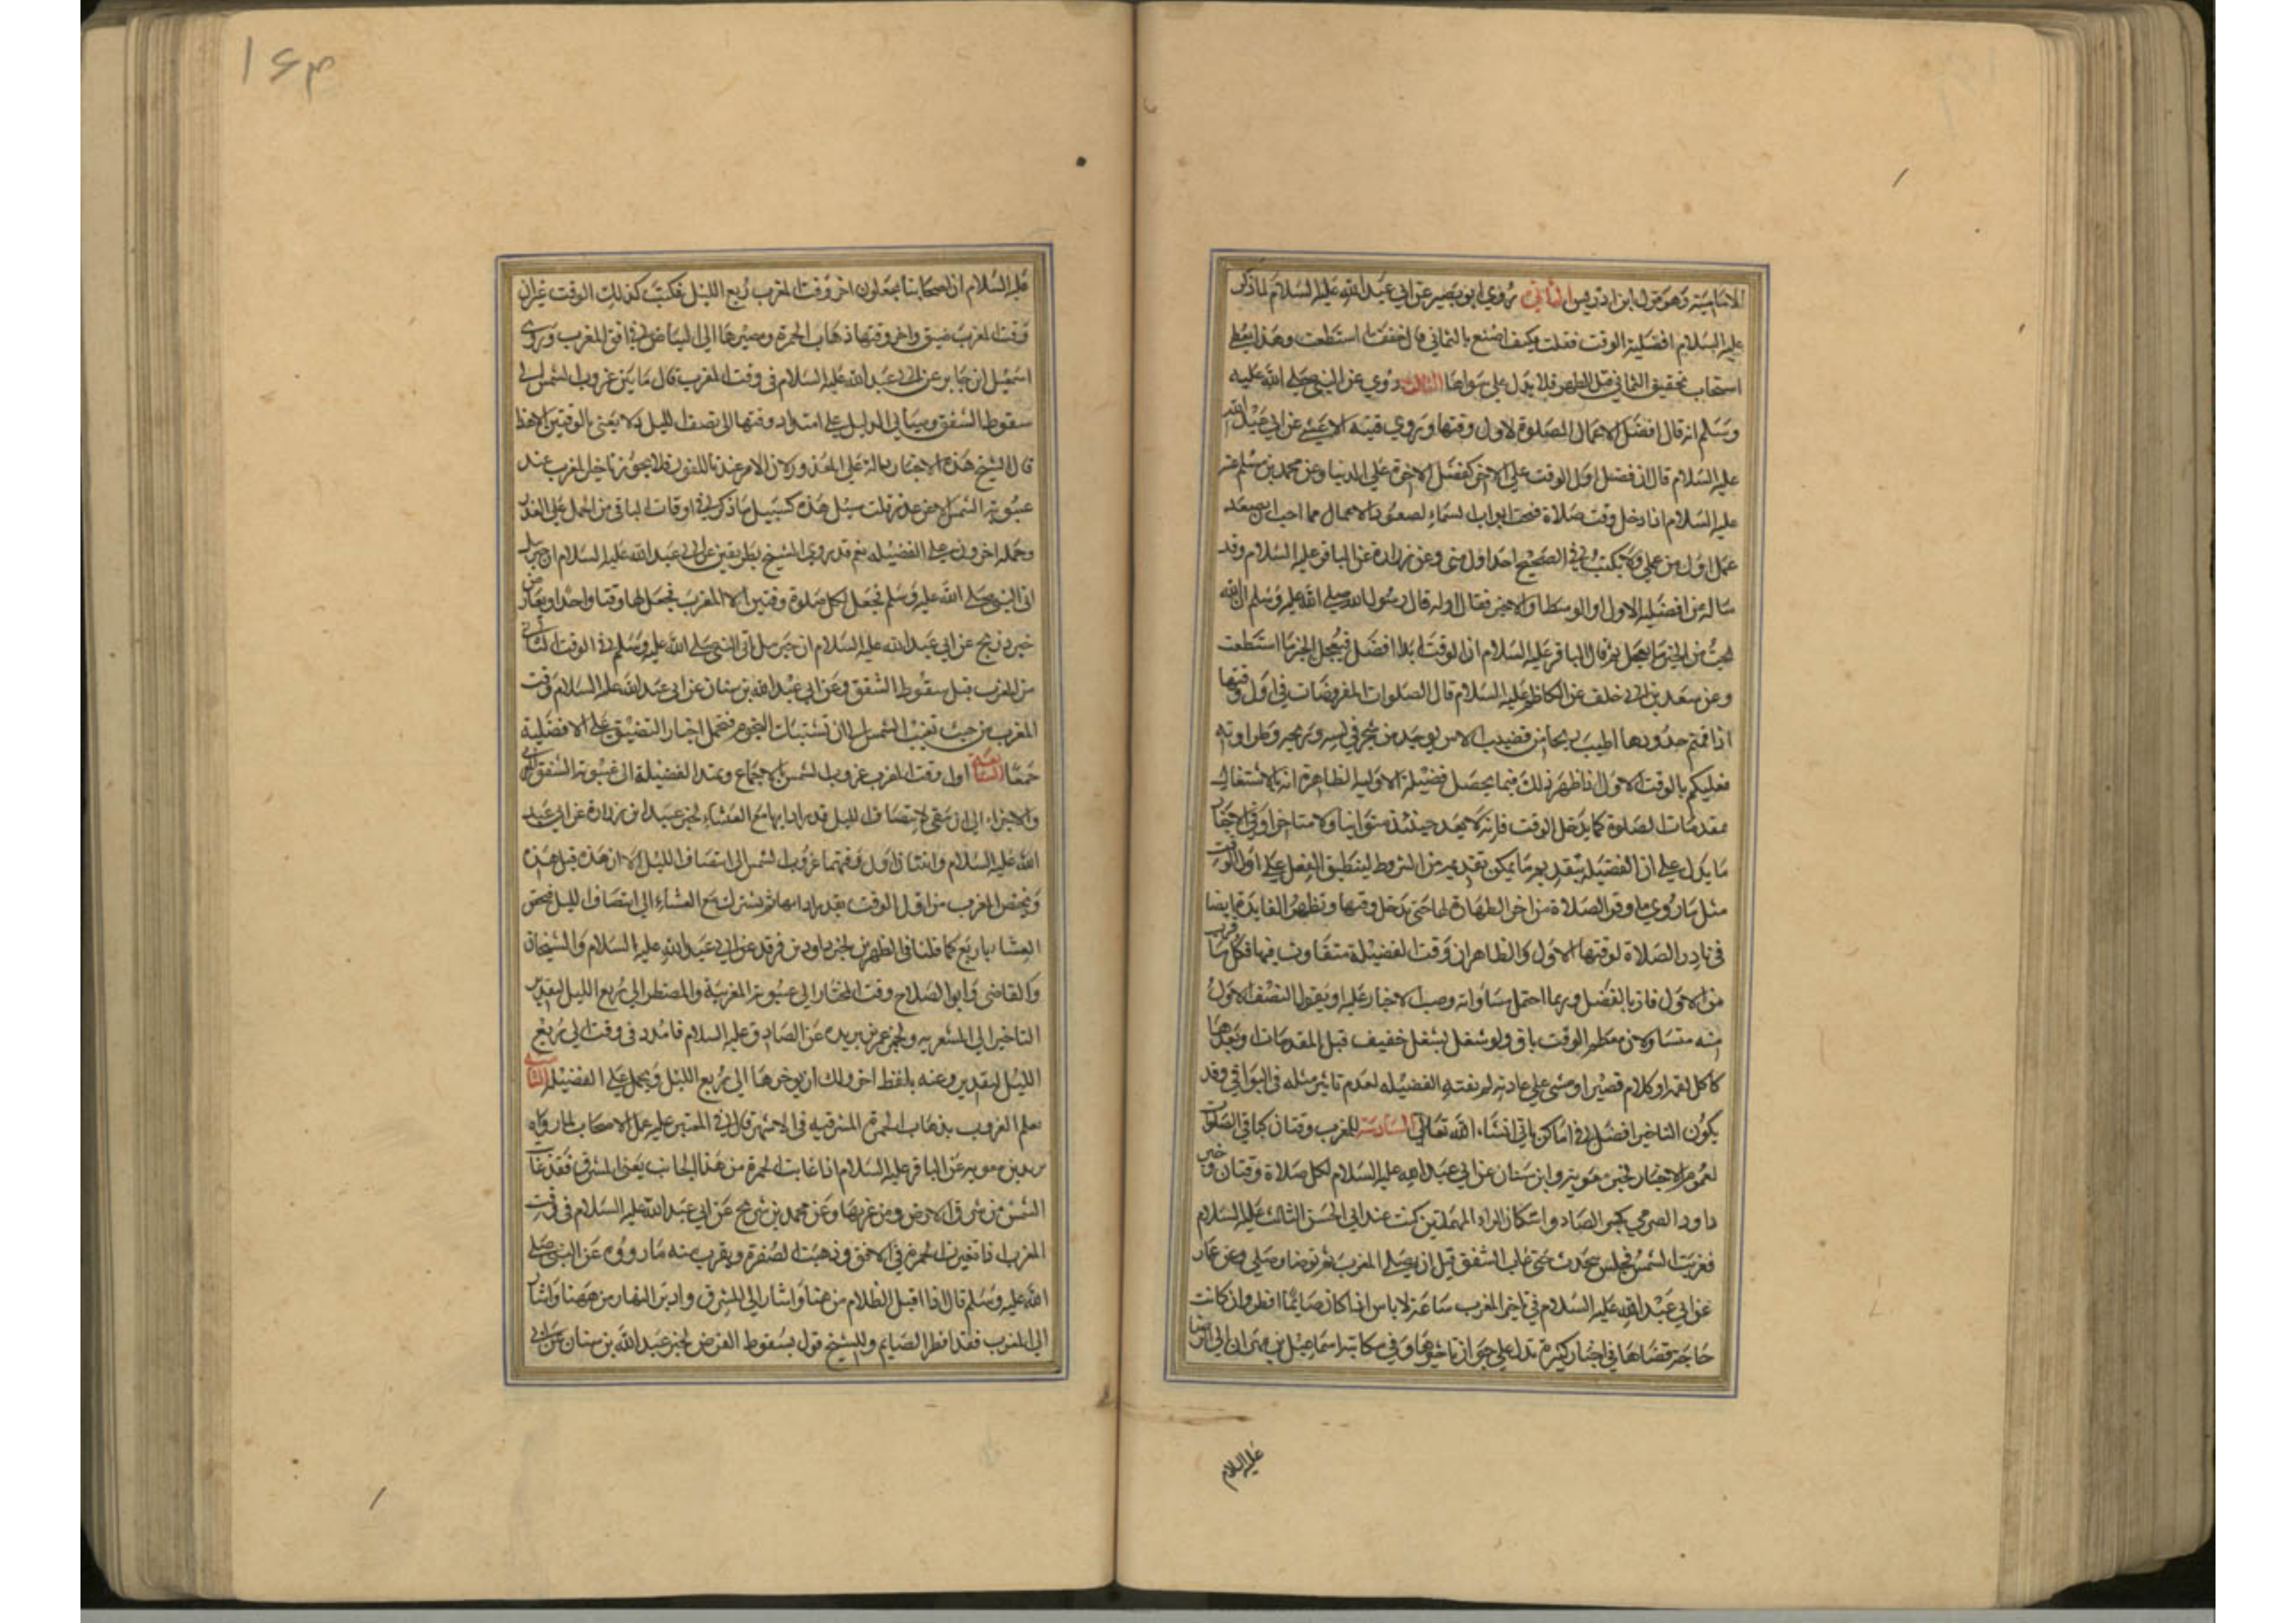 الامامية وهو قول ابن ادريس الثاني روي ابو بصير عن ابي عبد الله عليه السلام لما ذكر
عليه السلام افضلية الوقت فقلت كيف اصنع بالثماني قال خفف ما استطعت وهذا يعطي
استحباب تخفيف الثماني قبل الظهر فلا يعدل علي سواها الثالث روي عن النبي صلي الله عليه
وسلم انه قال افضل الاعمال الصلوة لاول وقتها وروي قتيبة الاعشي عن ابي عبد الله
عليه السلام قال ان فضل اول الوقت علي الاخر كفضل الاخرة علي الدنيا وعن محمد بن مسلم عنه
عليه السلام اذا دخل وقت صلاة فتحت ابواب السماء لصعود الاعمال فما احب ان يصعد
عمل اول من عملي ولا يكتب في الصحيفة احد اول مني وعن زرارة عن الباقر عليه السلام وقد
ساله عن افضلية الاول او الوسط او الاخر فقال اوله قال رسول الله صلي الله عليه وسلم ان الله
يحب من الخير ما يعجل ثم قال الباقر عليه السلام ان الوقت ابدا افضل فيعجل الخير ما استطعت
وعن سعد بن ابي خلف عن الكاظم عليه السلام قال الصلوات المفروضات في اول وقتها
اذا اقيم حدودها اطيب ريحا من قضيب الاس يوخذ من شجره في طيبه وريحه وطراوته
فعليكم بالوقت الاول اذا ظهر ذلك فبما يحصل فضيلة الاولية الظاهر انه بالاشتغال
مقدمات الصلوة كما يدخل الوقت فانه لا يعد حينئذ متوانيا ولا متاخرا وفي الاخبار
ما يدل علي ان الفضيلة بتقديم ما يمكن تقديمه من الشروط لينطبق الفعل علي اول الوقت
مثل ما روي ما وقر الصلاة من اخر الطهارة لها حتي يدخل وقتها وتظهر الفايدة ايضا
في نادر الصلاة لوقتها الاول والظاهر ان وقت الفضيلة متفاوت فيها فكل ما قرب
من الاول فاز بالفضل وربما احتمل مساواته وصب الاخبار عليه او يقول النصف الاول
منه متساو لان معظم الوقت باق ولو شغل بشغل خفيف قبل المقدمات او بعدها
كاكل لقمة او كلام قصير او مشي علي عادته لم يفته الفضيلة لعدم تاثير مثله في البواقي وقد
يكون التاخير افضل في اماكن ياتي انشاء الله تعالي السادسة للمغرب وقتان كباقي الصلوات
لعموم الاخبار لخبر معوية وابن سنان عن ابي عبد الله عليه السلام لكل صلاة وقتان وخبر
داود الصرمي بكسر الصاد واسكان الراء المهملتين كنت عند ابي الحسن الثالث عليه السلام
فغربت الشمس فجلس يتحدث حتي غاب الشفق قبل ان يصلي المغرب ثم توضا وصلي وعن عمار
عن ابي عبد الله عليه السلام في تاخير المغرب ساعة لا باس ان كان صايما افطر وان كانت
حاجة قضاها في اخبار كثيرة تدل علي جواز تاخيرها وفي مكاتبة اسماعيل بن مهران الي الرضا
عليه السلام
۱۶۳
عليه السلام ان اصحابنا يجعلون اخر وقت المغرب ربع الليل فكتب كذلك الوقت غير ان
وقت المغرب ضيق واخر وقتها ذهاب الحمرة ومصيرها الي البياض في افق المغرب وروي
اسمعيل ابن جابر عن ابي عبد الله عليه السلام في وقت المغرب قال ما بين غروب الشمس الي
سقوط الشفق وسياتي الدليل علي امتداد وقتها الي نصف الليل ولا يعني بالوقتين الا هذا
قال الشيخ هذه الاخبار دالة علي العذر ولان الامر عندنا للفور فلا يجوز تاخيل المغرب عند
غيبوبة الشمس الا عن عذر قلت سبيل هذه كسبيل ما ذكر في اوقات الباقي من الحمل علي العذر
وحمله اخرون علي الفضيلة نعم قد روي الشيخ بطريقين عن ابي عبد الله عليه السلام ان جبريل
اتي النبي صلي الله عليه وسلم فجعل لكل صلوة وقتين الا المغرب فجعل لها وقتا واحدا ويعارض
خبر ذريح عن ابي عبد الله عليه السلام ان جبريل اتي النبي صلي الله عليه وسلم في الوقت الثاني
من المغرب قبل سقوط الشفق وعن ابي عبد الله بن سنان عن ابي عبد الله عليه السلام وقت
المغرب من حيث تغيب الشمس الي ان تشتبك النجوم فتحمل اخبار التضييق علي الافضلية
جمعا السابعة اول وقت المغرب غروب الشمس بالاجماع ويمتد الفضيلة الي غيبوبة الشفق الغربي
والاجزاء الي ان يبقي لانتصاف الليل قدر ادايها مع العشاء لخبر عبيد ابن زرارة عن ابي عبد
الله عليه السلام واثنتان اول وقتهما غروب الشمس الي انتصاف الليل الا ان هذه قبل هذه
ويختص المغرب من اول الوقت بقدر ادايها ثم يشترك مع العشاء الي انتصاف الليل فيختص
العشاء باربع كما قلنا في الظهر لخبر داود بن فرقد عن ابي عبد الله عليه السلام والشيخان
وكالقاضي وابو الصلاح وقت المختار الي غيبوبة المغربية والمضطر الي ربع الليل لتقدير
التاخير الي المشعرية ولخبر عمر بن يزيد عن الصادق عليه السلام فامدد في وقت الي ربع
الليل لتقدير وعنه بلفظ اخر ولك ان يوخرها الي ربع الليل ويحمل علي الفضيلة الثامنة
يعلم الغروب بذهاب الحمرة المشرقية في الاشهر قال في المعتبر عليه عمل الاصحاب لما رواه
بريد بن معوية عن الباقر عليه السلام اذا غابت الحمرة من هذا الجانب يعني المشرق فقد غابت
الشمس من شرق الارض ومن غربها وعن محمد بن شريح عن ابي عبد الله عليه السلام في وقت
المغرب اذا تغيرت الحمرة في الافق وذهبت الصفرة ويقرب منه ما رووه عن النبي صلي
الله عليه وسلم قال اذا اقبل الظلام من هنا واشار الي المشرق وادبر النهار من ههنا واشار
الي المغرب فقد افطر الصايم وللشيخ قول بسقوط القرص لخبر عبد الله بن سنان عن ابي